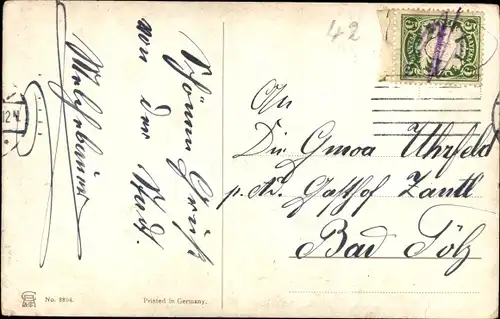 42
BAYERN
5 5
12 V.
Schönen Gruß
von der Stadt.
An
Die Gmoa Uhrfeld
p. Ad. Gasthof Zantl
Bad Tölz
No. 8894.
Printed in Germany.